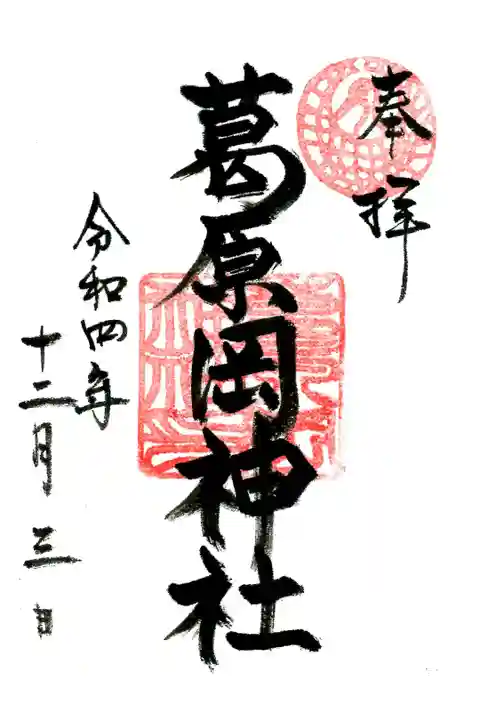 奉拝
葛原岡神社
令和四年
十二月三日